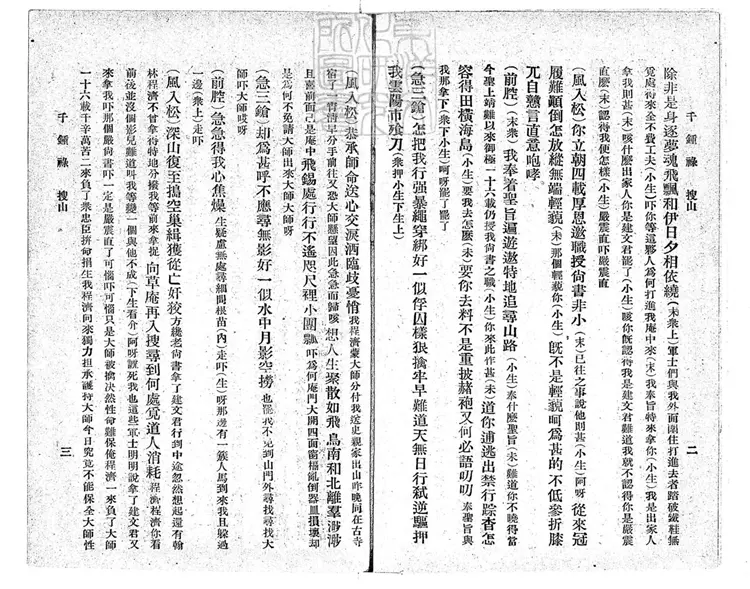 千鍾祿 搜山 二
除非是身逐夢魂飛飄和伊日夕相依繞(末衆上)軍士們與我外面圍住打進去者踏破鐵鞋無
覓處得來全不費工夫(小生)吓你等這夥人爲何打進我庵中來(末)我奉旨特來拿你(小生)我是出家人
拿我則甚(末)咳什麼出家人你是建文君罷了(小生)咳你旣認得我是建文君難道我就不認得你是嚴震
直麼(末)認得我便怎樣(小生)嚴震直吓嚴震直
(風入松)你立朝四載厚恩邀職授尙書非小(末)已往之事說他則甚(小生)阿呀從來冠
履難顚倒怎放縱無端輕藐(末)那個輕藐你(小生)旣不是輕藐呵爲甚的不低參折膝
兀自戇言直意咆哮
(前腔)(末衆)我奉着聖旨遍遊遨特地追尋山路(小生)奉什麼聖旨(末)難道你不曉得當
今聖上靖難以來御極一十六載仍授我尙書之職(小生)你來此作甚(末)道你逋逃出禁行踪杳怎
容得田橫海島(小生)要我去怎麼(末)要你去料不是重披赭袍又何必語叨叨奉聖旨與
我那拿下(衆下小生)呵呀罷了罷了
(急三鎗)怎把我行强暴繩穿綁好一似俘囚樣狠擒牢早難道天無日行弒逆驅押
我雲陽市飱刀(衆押小生下生上)
(風入松)恭承師命送心交淚洒臨歧憂悄我程濟蒙大師分付我送史親家出山昨晚同在古寺
宿了一宵淸早分手前往又恐大師懸望因此急急而歸咳想人生聚散如飛鳥南和北離羣渺渺
且喜前面已是庵中飛錫處行行不遙咫尺裡小團瓢吓爲何庵門大開四面窗槅亂倒器皿損壞却
是爲何不免請大師出來大師大師呀
(急三鎗)却爲甚呼不應尋無影好一似水中月影空撈也罷我不免到山門外尋找尋找大
師吓大師哎呀
(前腔)急急得我心焦燥生疑慮無處尋細問根苗(內)走吓(生)呀那邊有一簇人馬到來我且躱過
一邊(衆上)走吓
(風入松)深山復至搗空巢緝獲從亡奸狡方纔老尙書拿了建文君行到中途忽然想起還有翰
林程濟不曾拿得特地分撥我等前來拿捉向草庵再入搜尋到何處覓道人消耗程濟程濟你看
前後並沒個影兒難道叫我等變一個與他不成(下生看介)阿呀諕死我也這些軍士明明說拿了建文君又
來拿我吓那個嚴尙書吓一定是嚴震直了可惱吓可惱只是大師被擒决然性命難保俺程濟一來負了大師
一十六載千辛萬苦二來負了衆忠臣拚命捐生我程濟向來獨力担承護持大師今日究竟不能保全大師性
千鍾祿 搜山 三